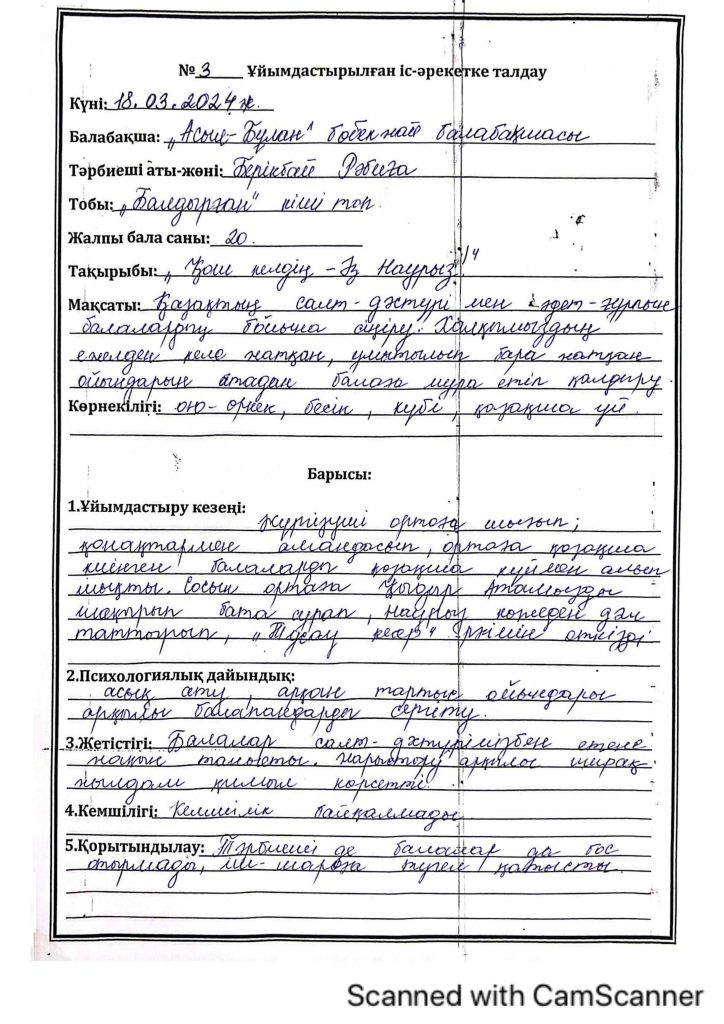 № 3 Ұйымдастырылған іс-әрекетке талдау
Күні: 18.03.2024 ж.
Балабақша: "Асыл-Бұлан" бөбекжай балабақшасы
Тәрбиеші аты-жөні: Берікбай Рәбиға
Тобы: "Балдырған" кіші топ
Жалпы бала саны: 20.
Тақырыбы: "Қош келдің - Әз Наурыз!"
Мақсаты: Қазақтың салт-дәстүрі мен әдет-ғұрпын
балалардың бойына сіңіру. Халқымыздың
ежелден келе жатқан, ұмытылып бара жатқан
ойындарын атадан балаға мұра етіп қалдыру.
Көрнекілігі: ою-өрнек, бесік, күбі, қазақша үй.
Барысы:
1.Ұйымдастыру кезеңі:
Жүргізуші ортаға шығып;
қонақтармен амандасып, ортаға қазақша
киінген балаларды қазақша күймен алып
шықты. Сосын ортаға Қыдыр Атамызды
шақырып бата сұрап, наурыз көжеден дәм
таттырып, "Тұсау кесер" рәсімін өткізді
2.Психологиялық дайындық:
асық ату, арқан тартыс ойындары
арқылы балапандарды сергіту.
3.Жетістігі: Балалар салт-дәстүрімізбен етене
жақын танысты. Жарыстыру арқылы ширақ-
жылдам қимыл көрсетті.
4.Кемшілігі: Кемшілік байқалмады
5.Қорытындылау: Тәрбиеші де балалар да бос
отырмады, іш-шараға түгел қатысты.
Scanned with CamScanner